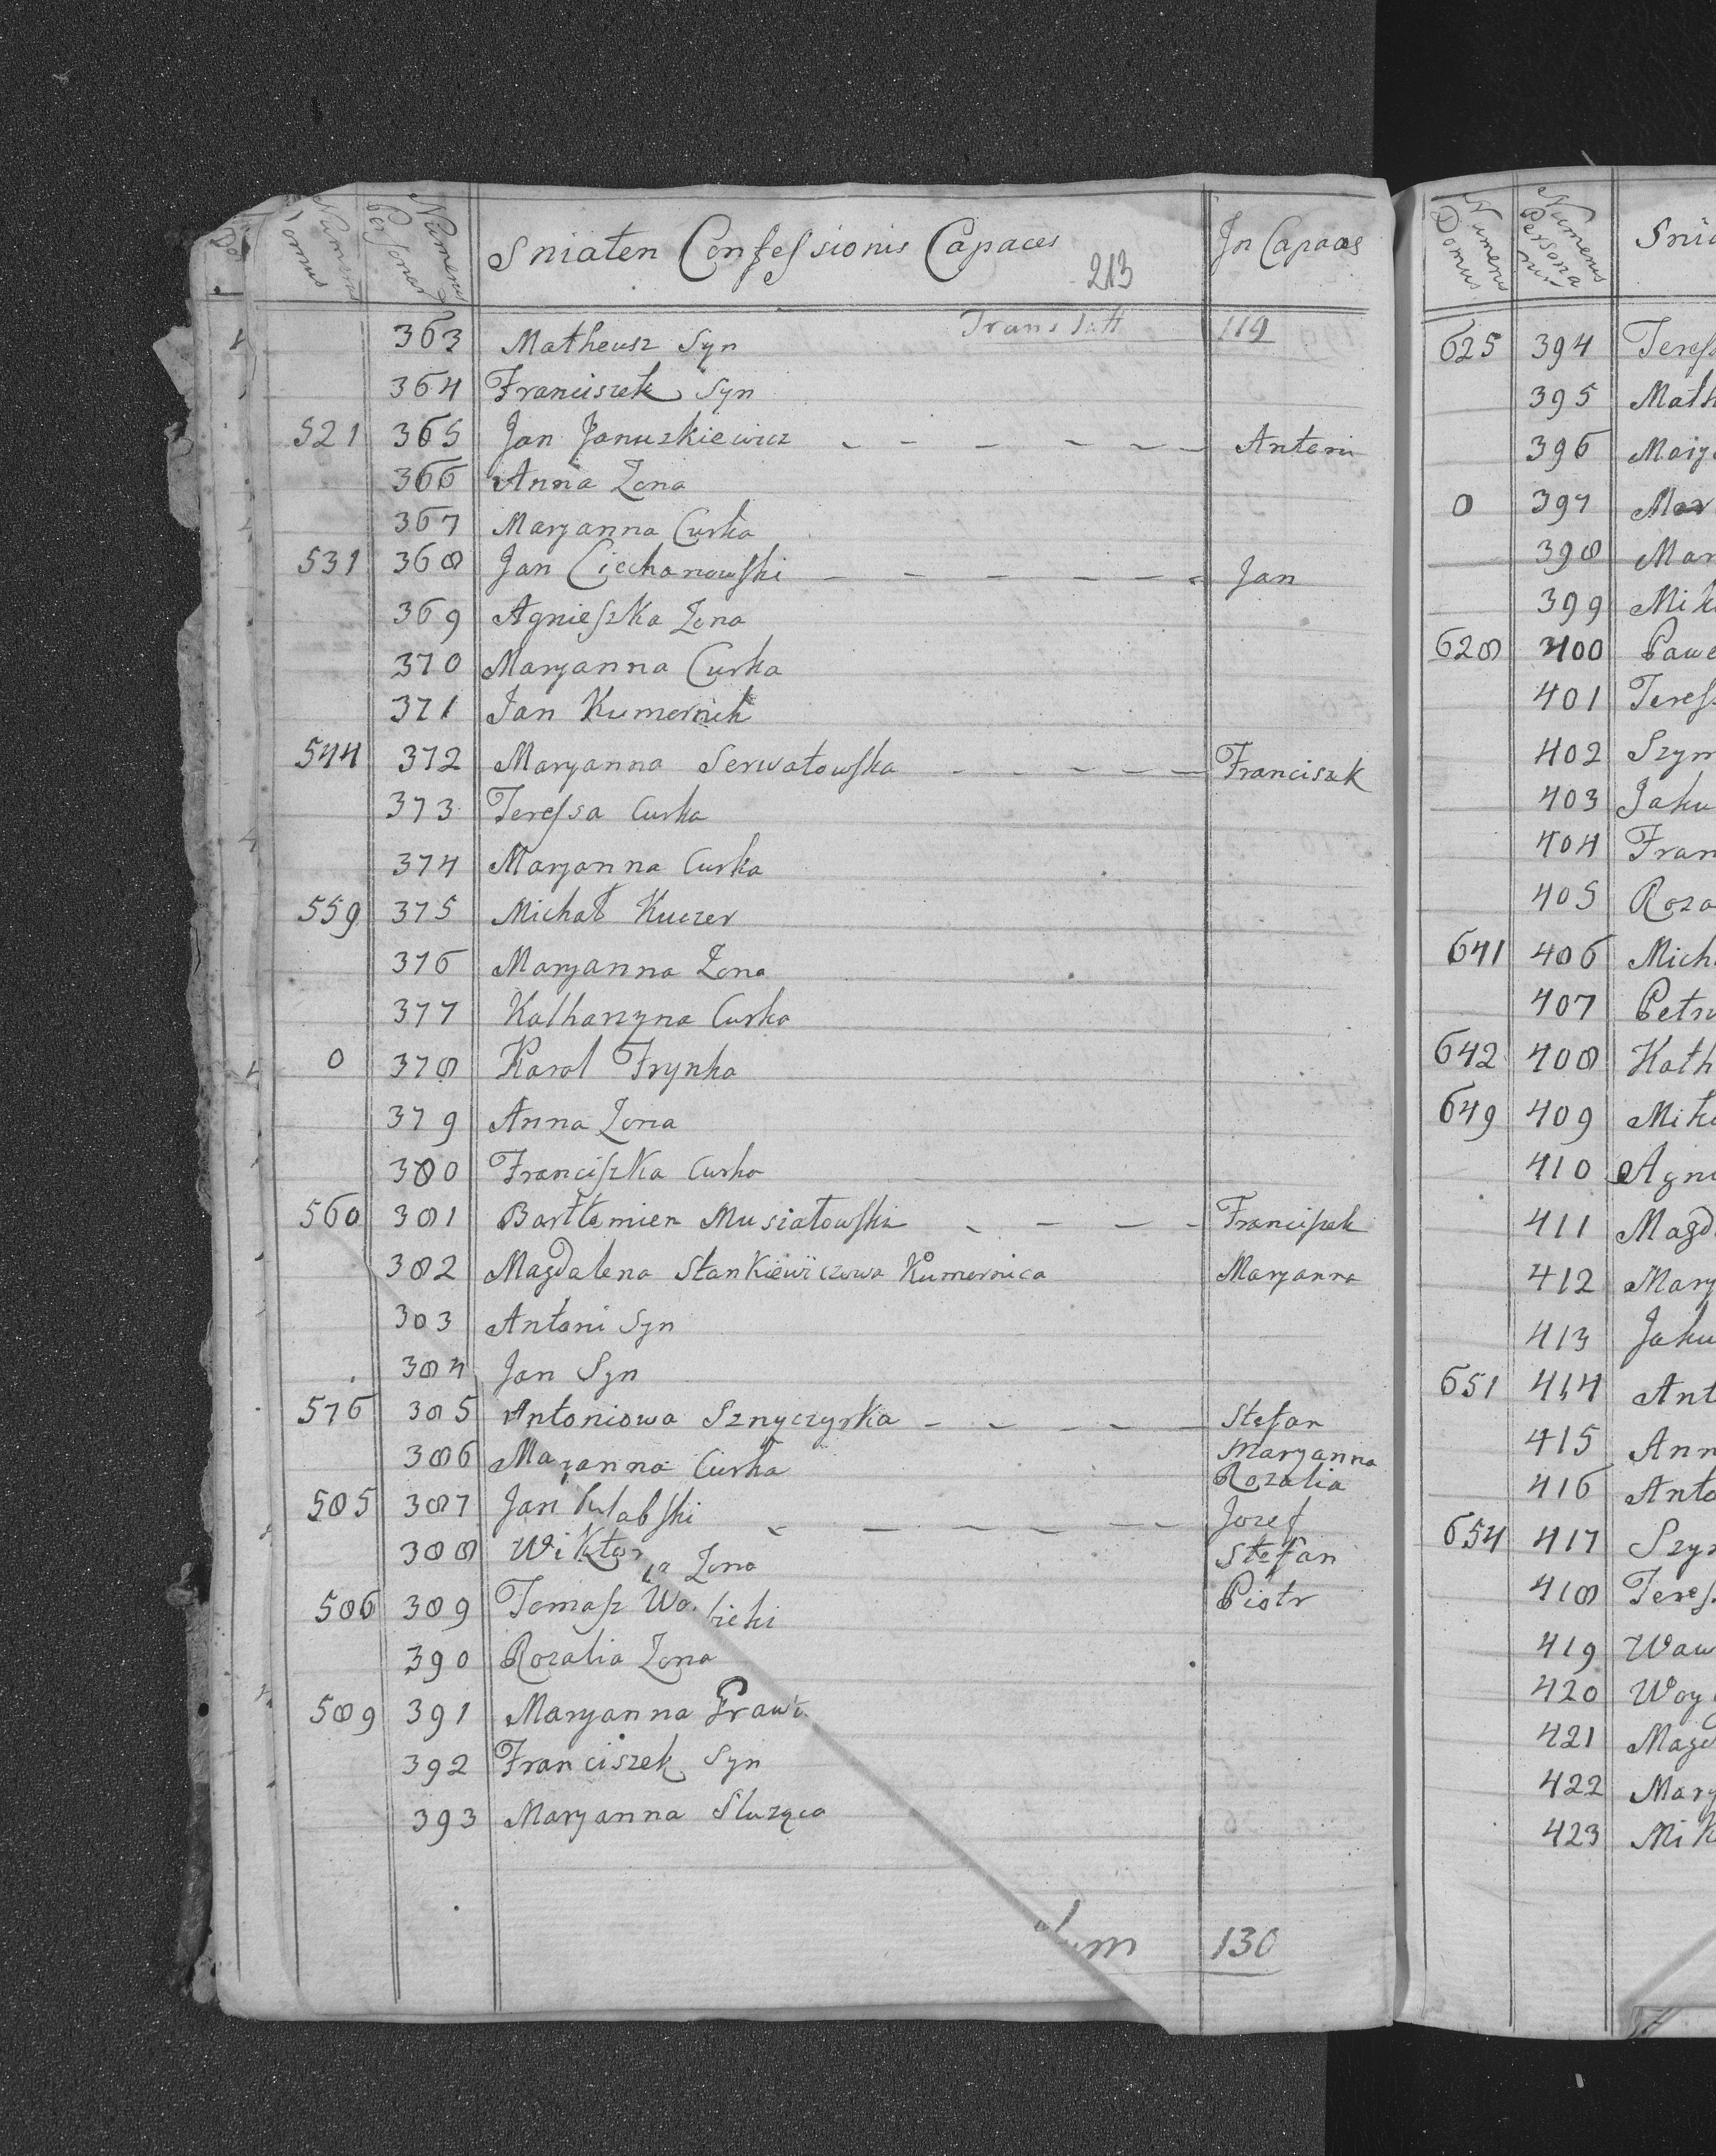 Numerus Domus Numerus Personar Sniaten Confessionis Capaces 213 In Capaces
363 Matheusz Syn Translatt 119
364 Franciszek Syn
521 365 Jan Januszkiewicz - - - - - - Antoni
366 Anna Zona
367 Maryanna Curka
531 368 Jan Ciechanowski - - - - - - Jan
369 Agnieszka Zona
370 Maryanna Curka
371 Jan Kumornik
544 372 Maryanna Serwatowska - - - - - Franciszek
373 Teressa Curka
374 Maryanna Curka
559 375 Michał Kuczer
376 Maryanna Zona
377 Katharzyna Curka
0 378 Karol Frynka
379 Anna Zona
380 Franciszka Curka
560 381 Bartłomien Musiatowski - - - - Franciszek
382 Magdalena Stankiewiczowa Kumornica Maryanna
383 Antoni Syn
384 Jan Syn
576 385 Antoniowa Sznyczyrka - - - - - Stefan
386 Maryanna Curka Maryanna
Rozalia
585 387 Jan - - - - - - Jozef
388 Wiktorya Zona Stefan
586 389 Tomasz Piotr
390 Rozalia Zona
589 391 Maryanna
392 Franciszek Syn
393 Maryanna Sluząca
130
Numerus Domus Numerus Persona rum
625 394 Teress
395 Math
396 Mary
0 397 Mar
398 Mar
399 Mik
628 400 Pawe
401 Teres
402 Szym
403 Jaku
404 Fran
405 Roza
641 406 Mich
407 Petr
642 408 Kath
649 409 Miko
410 Agni
411 Magd
412 Mary
413 Jaku
651 414 Ant
415 Ann
416 Anto
654 417 Szy
418 Teres
419 Waw
420 Woy
421 Magd
422 Mary
423 Mik